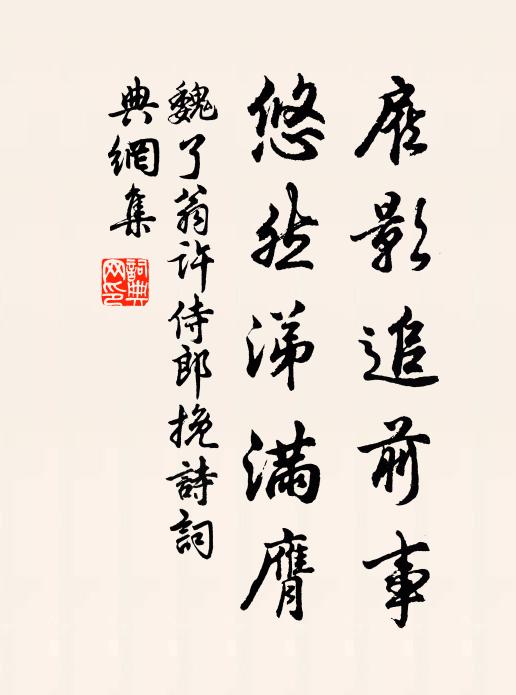 扆影追前事
悠然涕满膺
魏了翁许侍郎挽詩詞
典網集
詞典
网印